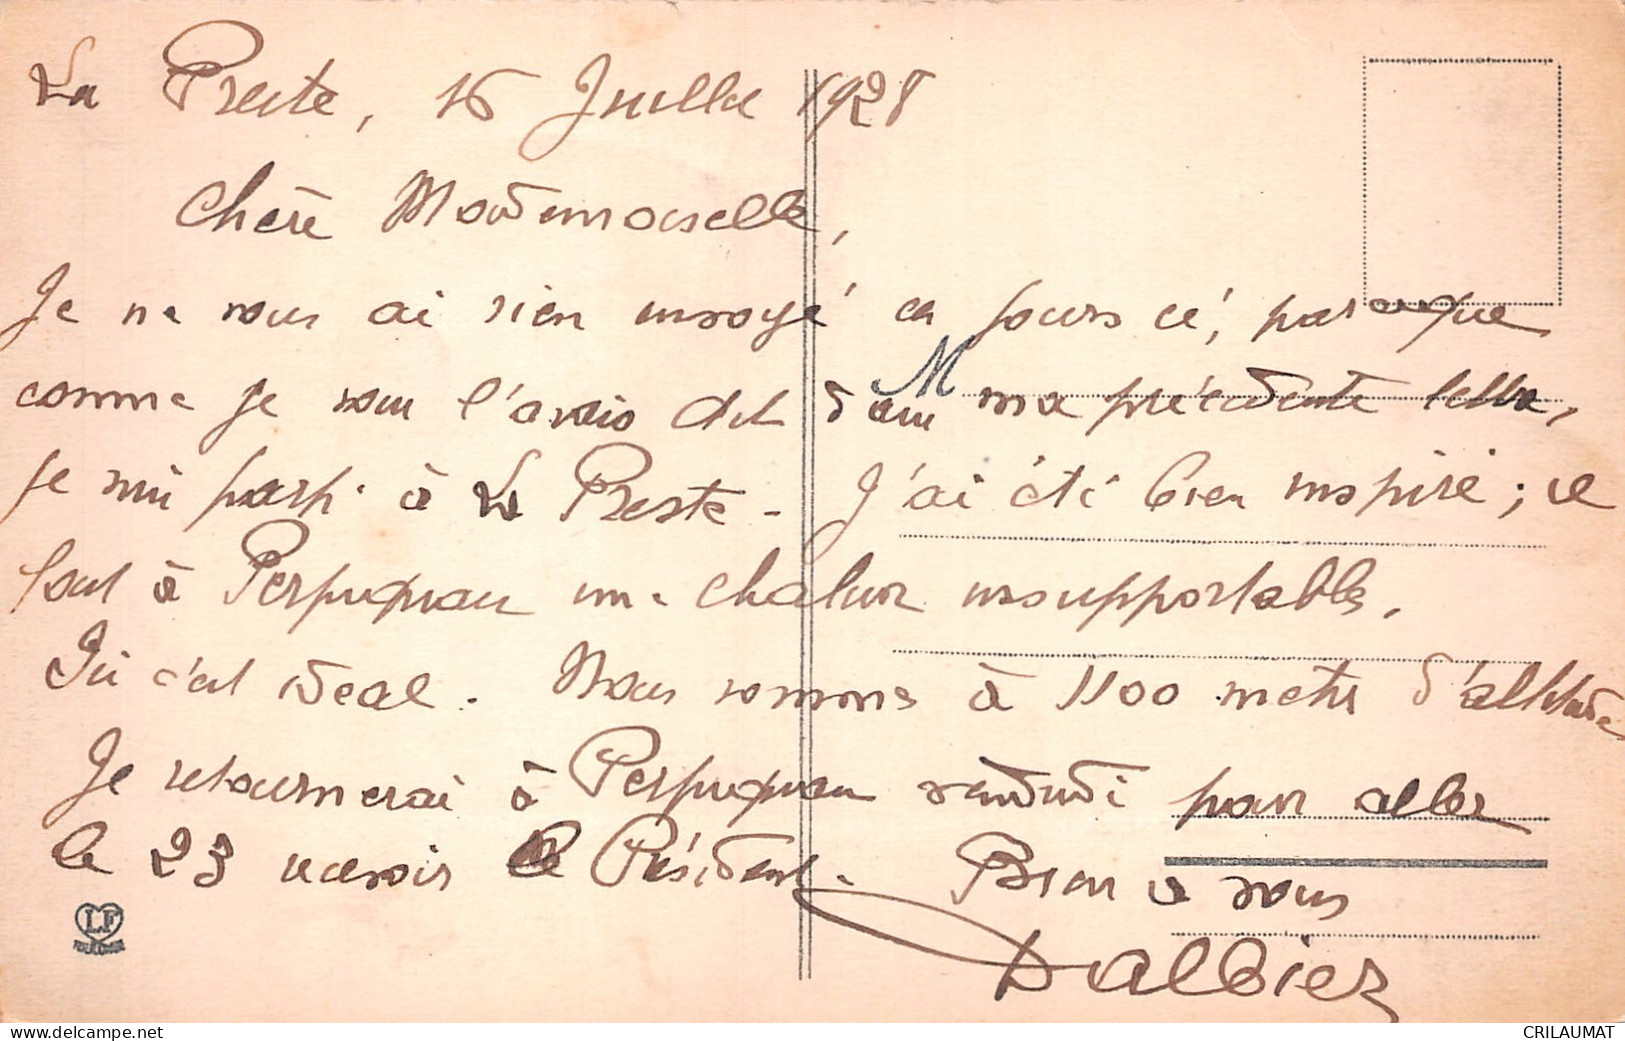 La Preste, 16 Juillet 1928
Chère Mademoiselle,
Je ne vous ai rien envoyé ces jours ci, parce que
comme je vous l'avais dit dans ma précédente lettre,
M
je suis parti à La Preste - J'ai été bien inspiré ; il
fait à Perpignan une chaleur insupportable.
Ici c'est idéal. Nous sommes à 1100 metres d'altitude
Je retournerai à Perpignan vendredi pour aller
le 23 recevoir le Président. Bien à vous
Dalbiez
LF
CRILAUMAT